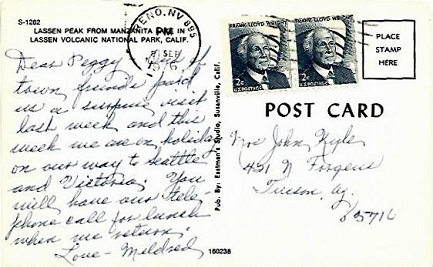 S-1262
LASSEN PEAK FROM MANZANITA LAKE IN
LASSEN VOLCANIC NATIONAL PARK, CALIF.
RENO, NV 895
PM
SEP
FRANK LLOYD WRIGHT
2¢
U.S. POSTAGE
FRANK LLOYD WRIGHT
2¢
U.S. POSTAGE
PLACE
STAMP
HERE
POST CARD
Dear Peggy - Out of
town friends paid
us a surprise visit
last week and this
week we are on holiday
on our way to Seattle
and Victoria. You
will have our tele-
phone call for lunch
when we return.
Love - Mildred
Pub. By: Eastman's Studio, Susanville, Calif.
Mrs John Kyle
421 N
Tucson, Az.
85716
160238